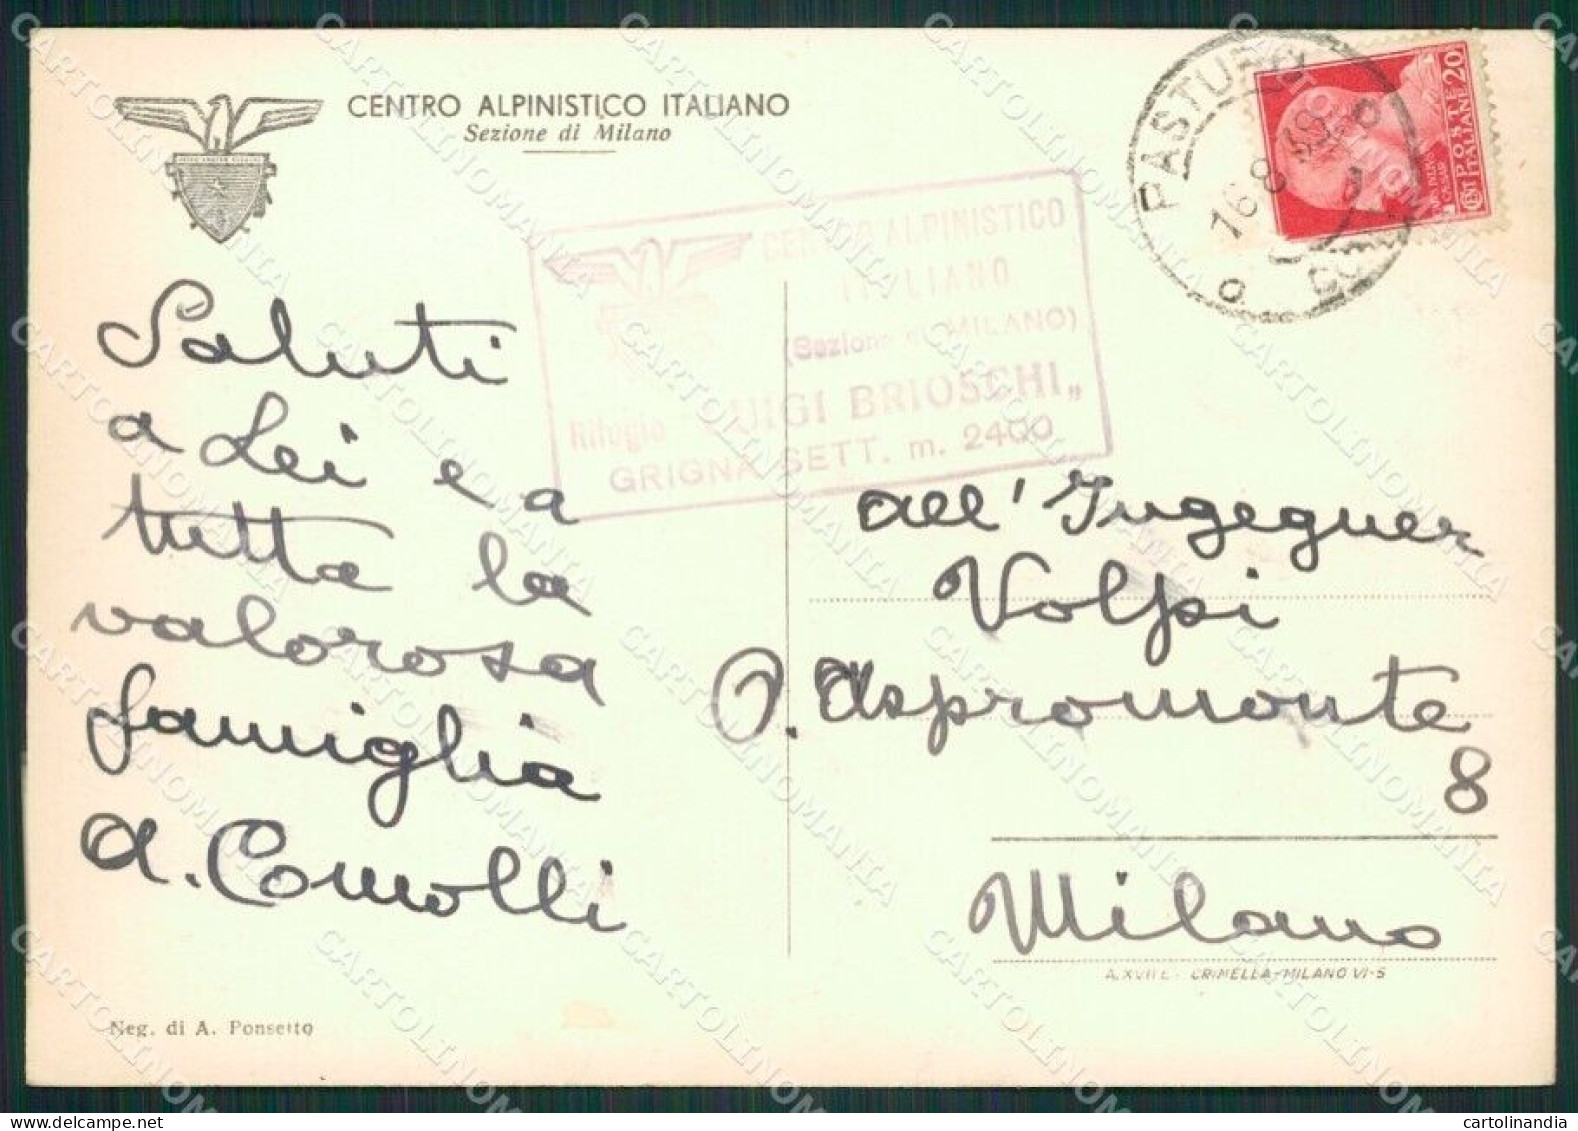 CENTRO ALPINISTICO ITALIANO
Sezione di Milano
CENTRO ALPINISTICO
ITALIANO
(Sezione di MILANO)
Rifugio LUIGI BRIOSCHI„
GRIGNA SETT. m. 2400
PASTURO
16 8 39
POSTE
ITALIANE
CENT 20
Saluti
a Lei e a
tutta la
valorosa
famiglia
A. Comolli
all' Ingegner
Volpi
P. Aspromonte
8
Milano
A. XVII E. CRIMELLA-MILANO VI-5
Neg. di A. Ponsetto
CARTOLINOMANIA
cartolinandia